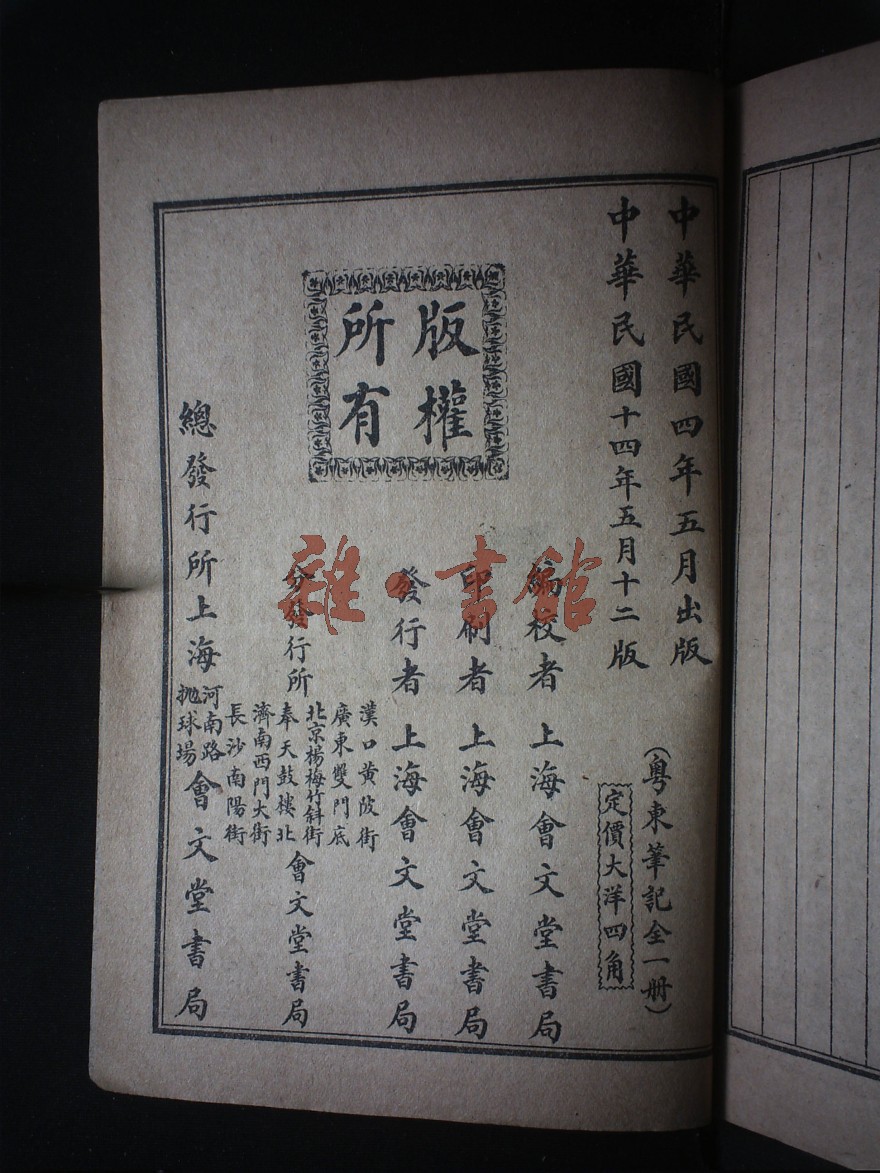 中華民國四年五月出版
中華民國十四年五月十二版
(粤東筆記全一册)
定價大洋四角
版權
所有
編校者 上海會文堂書局
印刷者 上海會文堂書局
發行者 上海會文堂書局
分發行所
漢口黄陂街
廣東雙門底
北京楊梅竹斜街
奉天鼓樓北
濟南西門大街
長沙南陽街
會文堂書局
總發行所上海
河南路
抛球場
會文堂書局
雜·書館